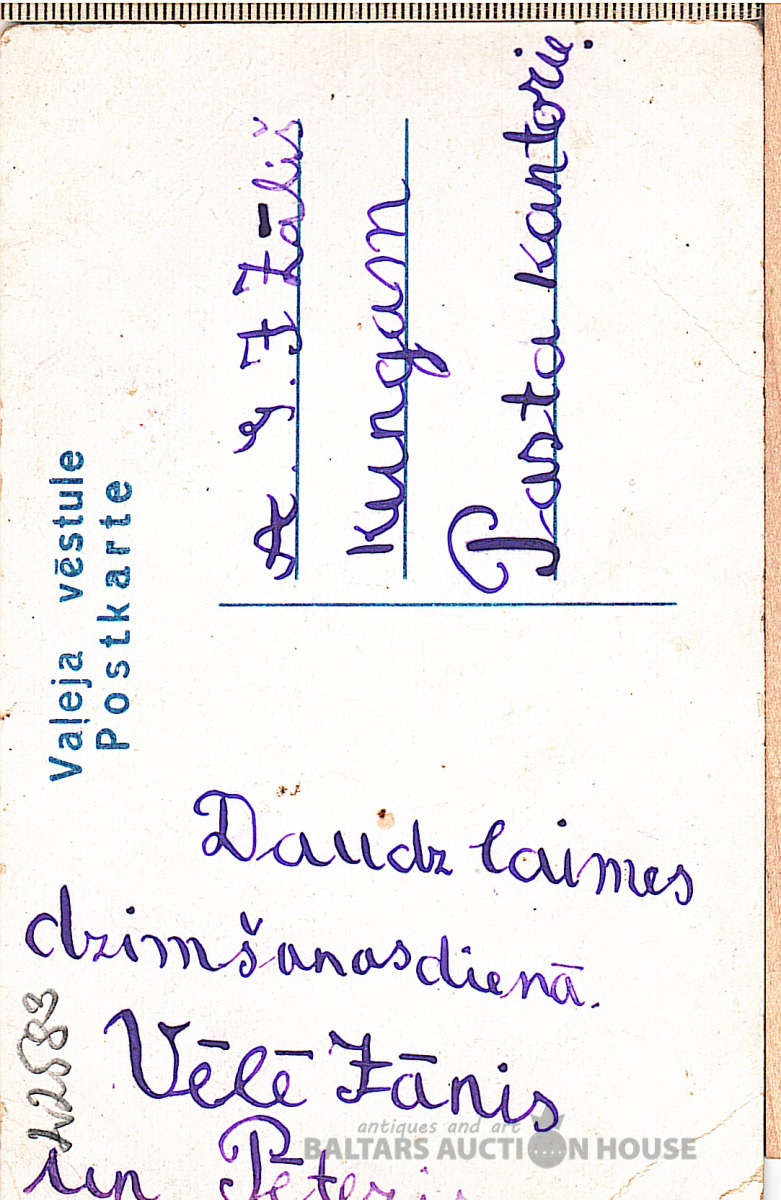 Vaļeja vēstule
Postkarte
A. g. J. Zāliš
kungam
Pasta kantorī.
Daudz laimes
dzimšanasdienā.
Vēlē Jānis
un Pēteris
42583
antiques and art
BALTARS AUCTION HOUSE